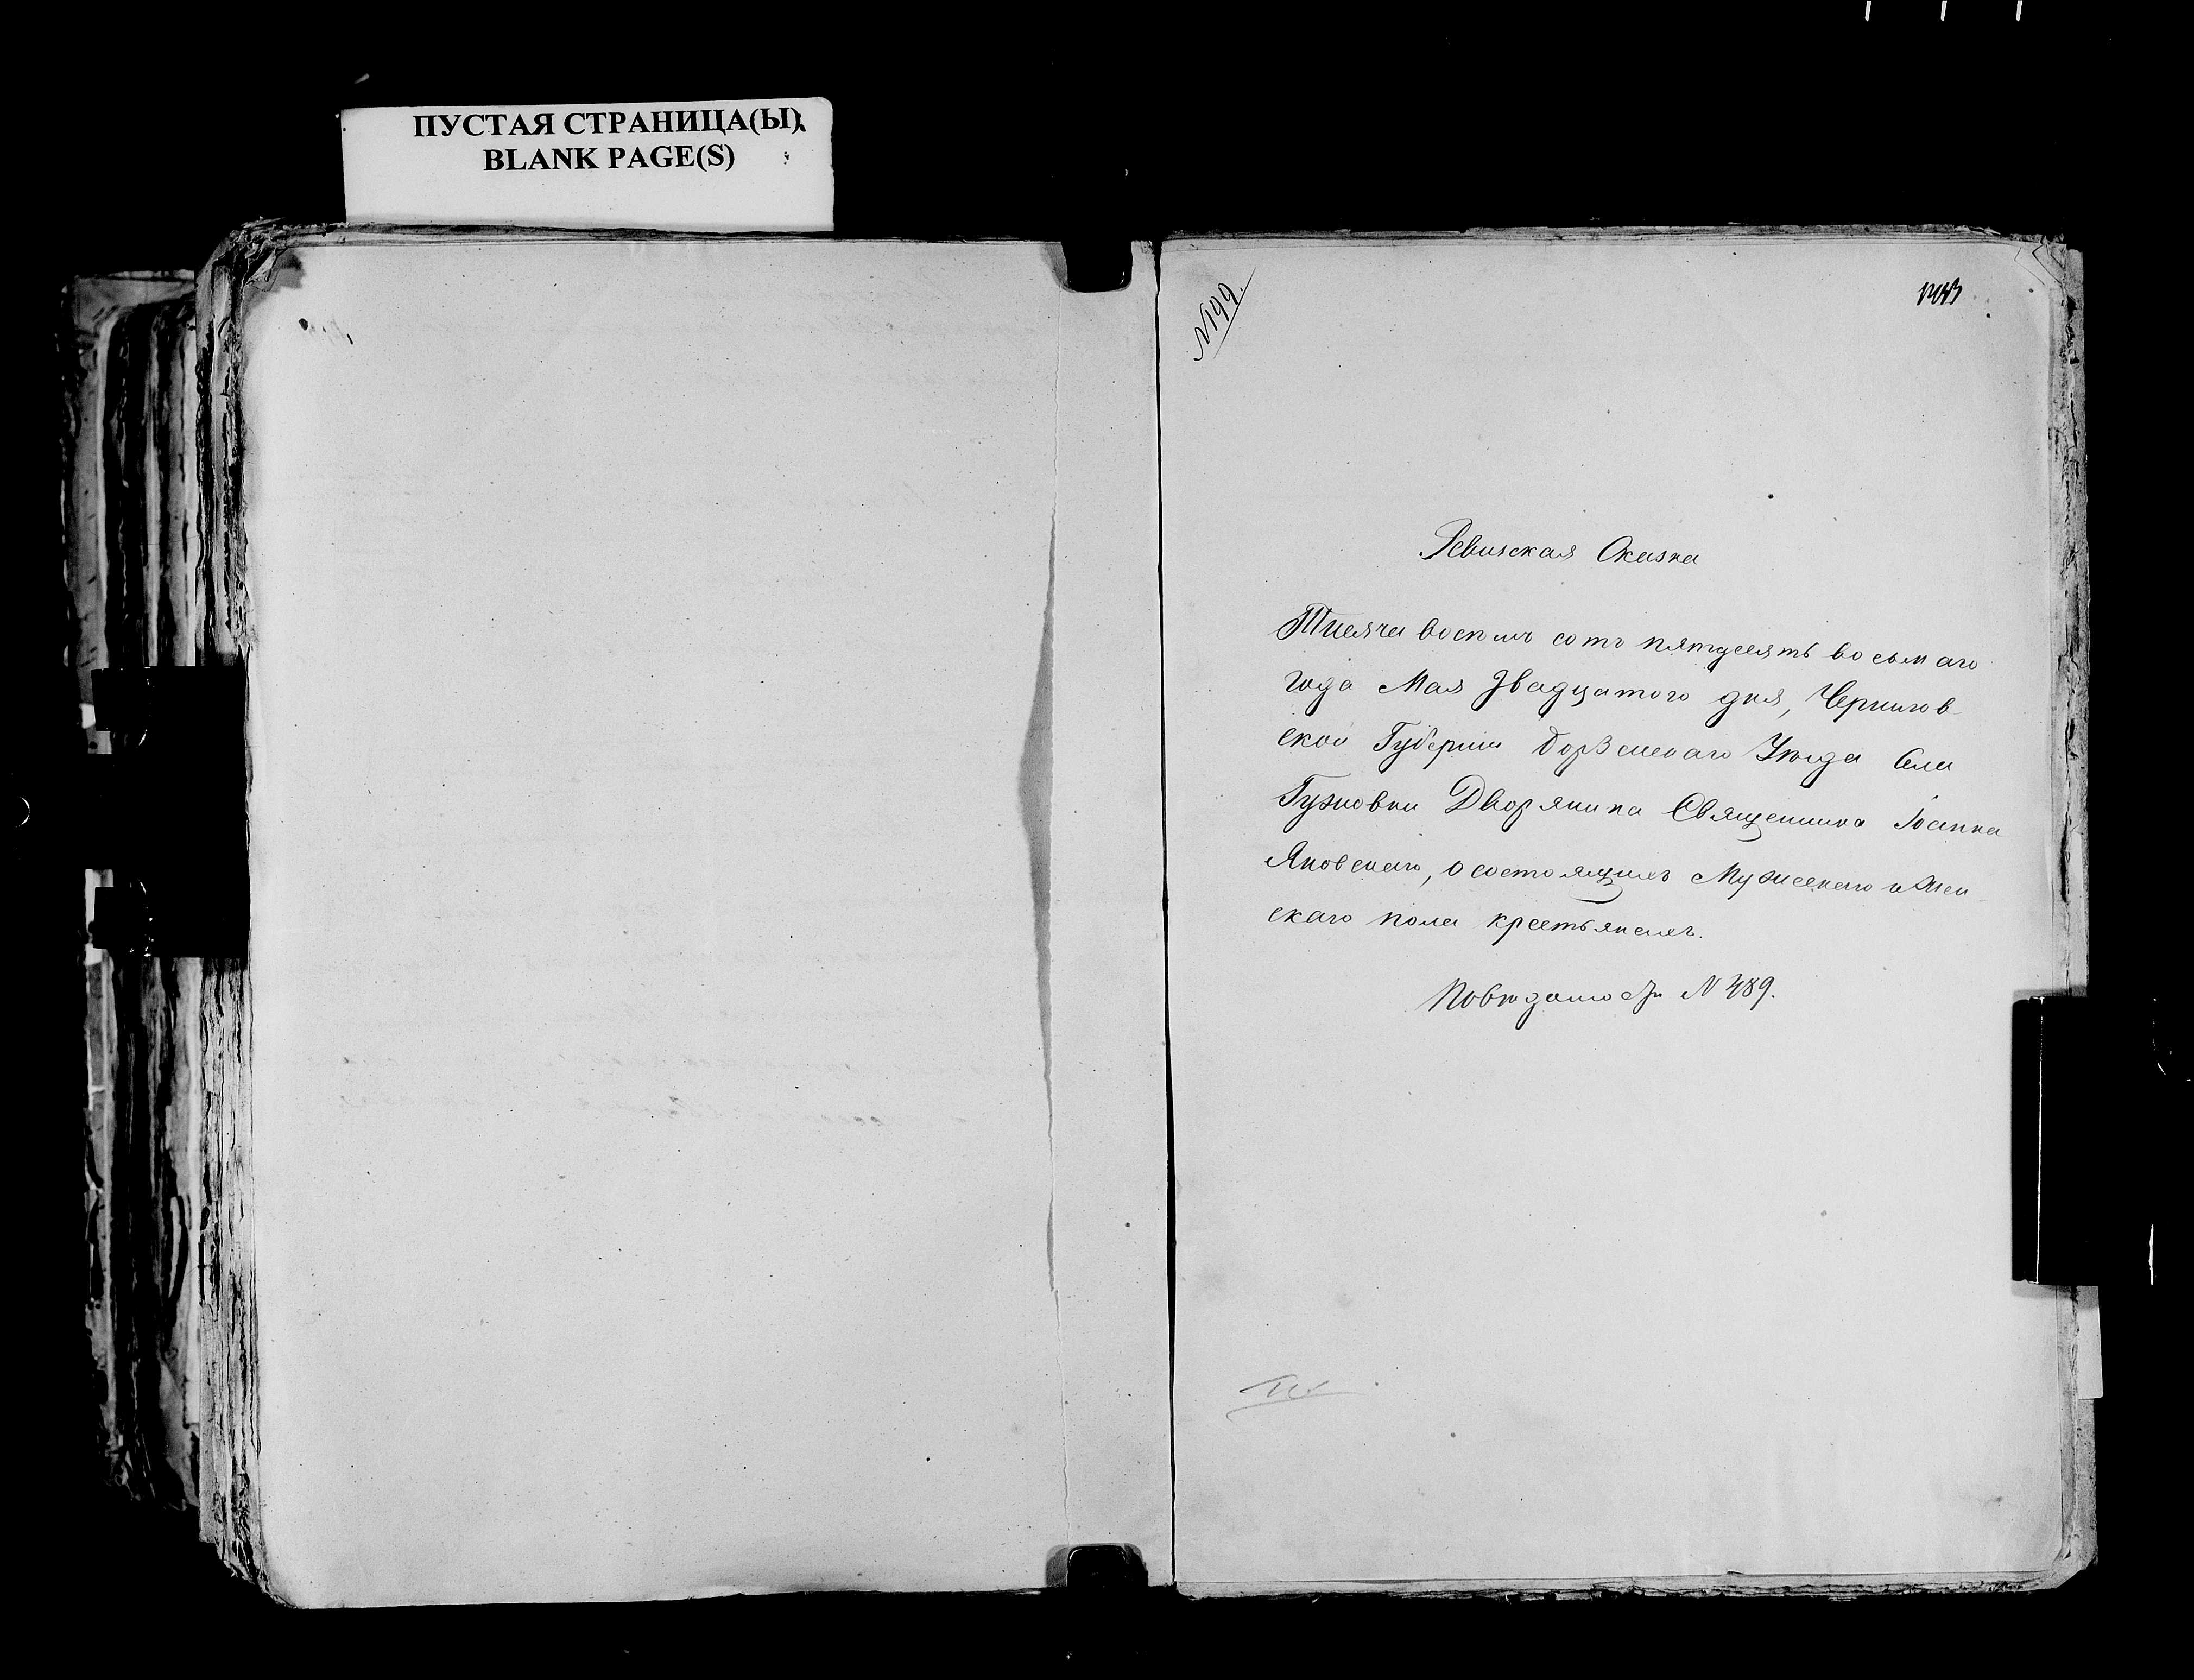 ПУСТАЯ СТРАНИЦА(Ы)
BLANK PAGE(S)
N199.
Ревизская Сказка
Тысяча восемь сотъ пятдесятъ восьмаго
года Мая двадцатого дня, Чернигов
ской Губерніи Борзенскаго Уѣзда Села
Гужовки Дворянина Священника Іоанна
Яновскаго, о состоящихъ Мужескаго и Жен
скаго пола крестьянехъ.
По вѣдомости N 489.